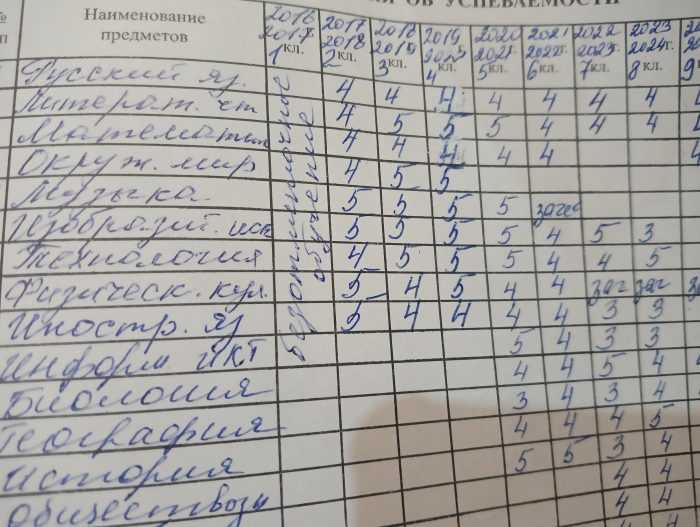 ОБ УСПЕВАЕМОСТИ
№ Наименование предметов 2016 2017 1 кл. 2017 2018 2 кл. 2018 2019 3 кл. 2019 4 кл. 2020 2021 5 кл. 2021 2022г. 6 кл. 2022 2023г. 7 кл. 2023 2024г. 8 кл.
безотметочное обучение
Русский яз. 4 4 4 4 4 4 4
Литерат. чт 4 5 5 5 4 4 4
Математик 4 4 4 4 4
Окруж. мир 4 5 5
Музыка 5 5 5 5 зачет
Изобразит. иск 5 5 5 5 4 5 3
Технология 4 5 5 5 4 4 5
Физическ. кул. 5 4 5 4 4 заг заг
Иностр. яз 5 4 4 4 4 3 3
Информ ИКТ 5 4 3 3
Биология 4 4 5 4
География 3 4 3 4
История 4 4 4 5
Обществозн 5 5 3 4
4 4
4 4
4